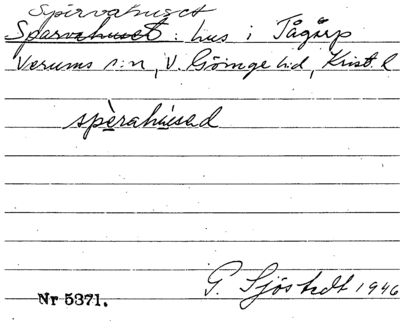 Spirvahuset
Sparvahuset : hus i Tågarp
Verums s:n, V. Göinge hd, Krist. l
spèrahúsad
G. Sjöstedt 1946
Nr 5371.